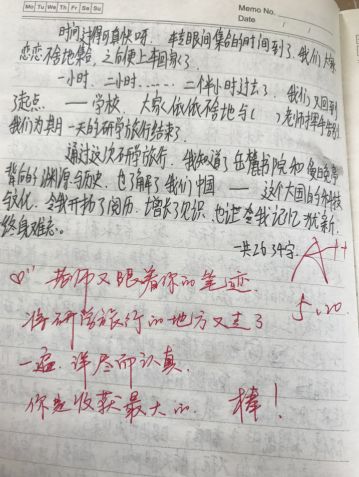 Mo Tu We Th Fr Sa Su
Memo No.
Date / /
时间过得可真快呀，转眼间集合的时间到了，我们大家
恋恋不舍地集合，之后便上车回家了。
一小时、二小时……二个半小时过去了，我们又回到
了起点——学校，大家依依不舍地与（ ）老师挥手告别，
我们为期一天的研学旅行结束了。
通过这次研学旅行，我知道了岳麓书院和
背后的渊源与历史，也了解了我们中国——这个大国的与科技
与文化，令我开拓了阅历，增长了见识，也让我记忆犹新，
终身难忘。
一共2634字
A++
5.20
老师又跟着你的笔迹
将研学旅行的地方又走了
一遍，详尽而认真，
你是收获最大的，棒！